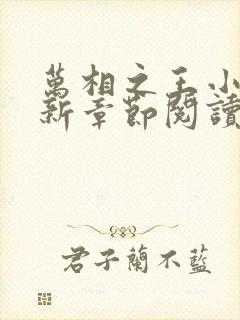 萬相之王小
新章節閱讀
君子蘭不藍